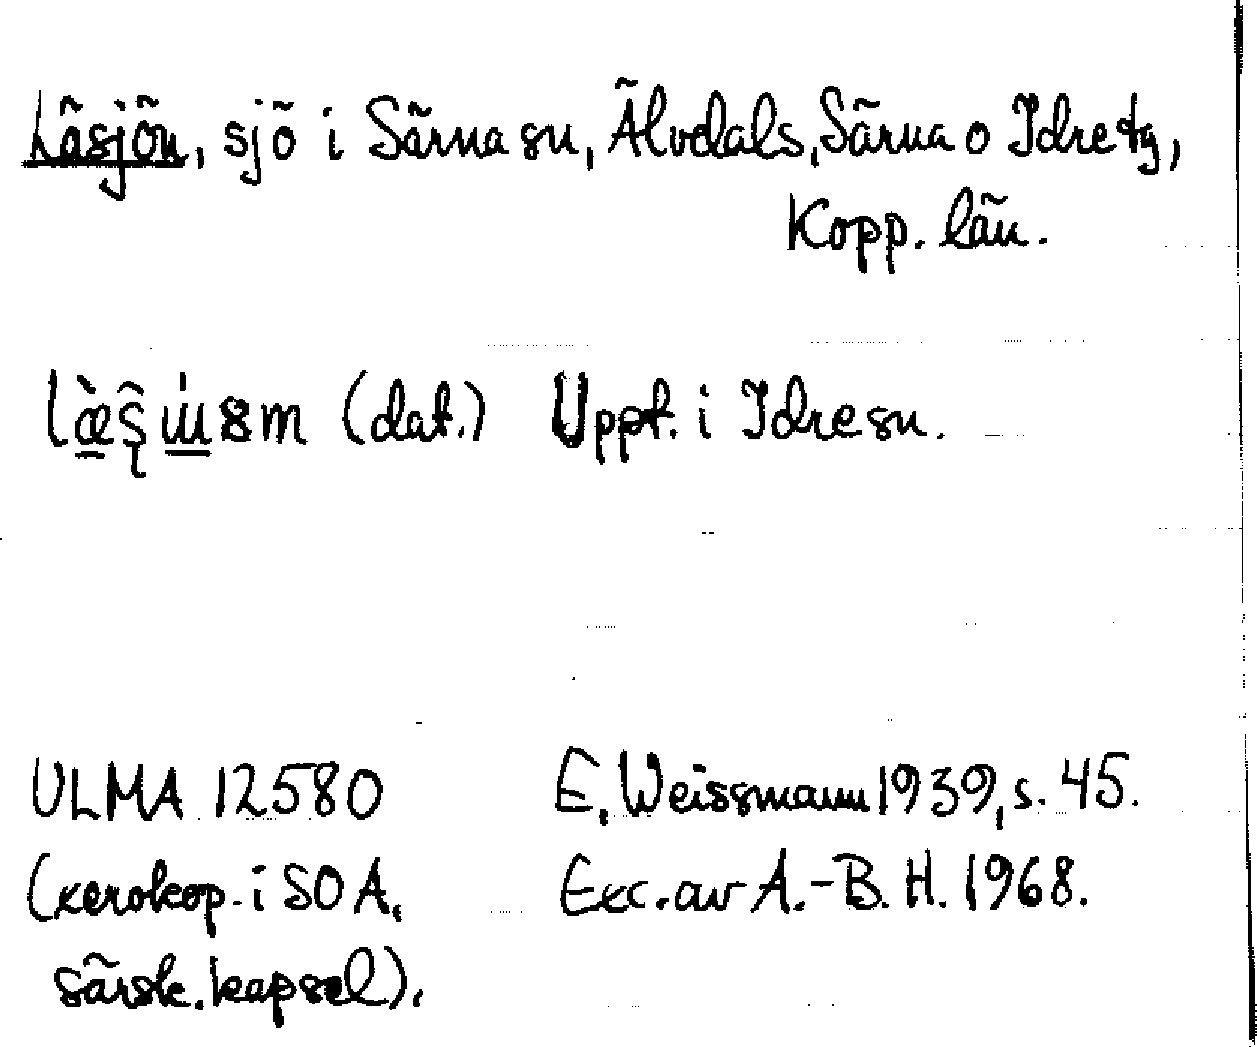 Läsjön, sjö i Särna sn, Älvdals, Särna o Idre tg,
Kopp. län.
(dat.) Uppt. i Idre sn.
ULMA 12580
E. Weissmann 1939, s. 45.
(xerokop. i SOA,
Exc. av A.-B. H. 1968.
särsk. kapsel).